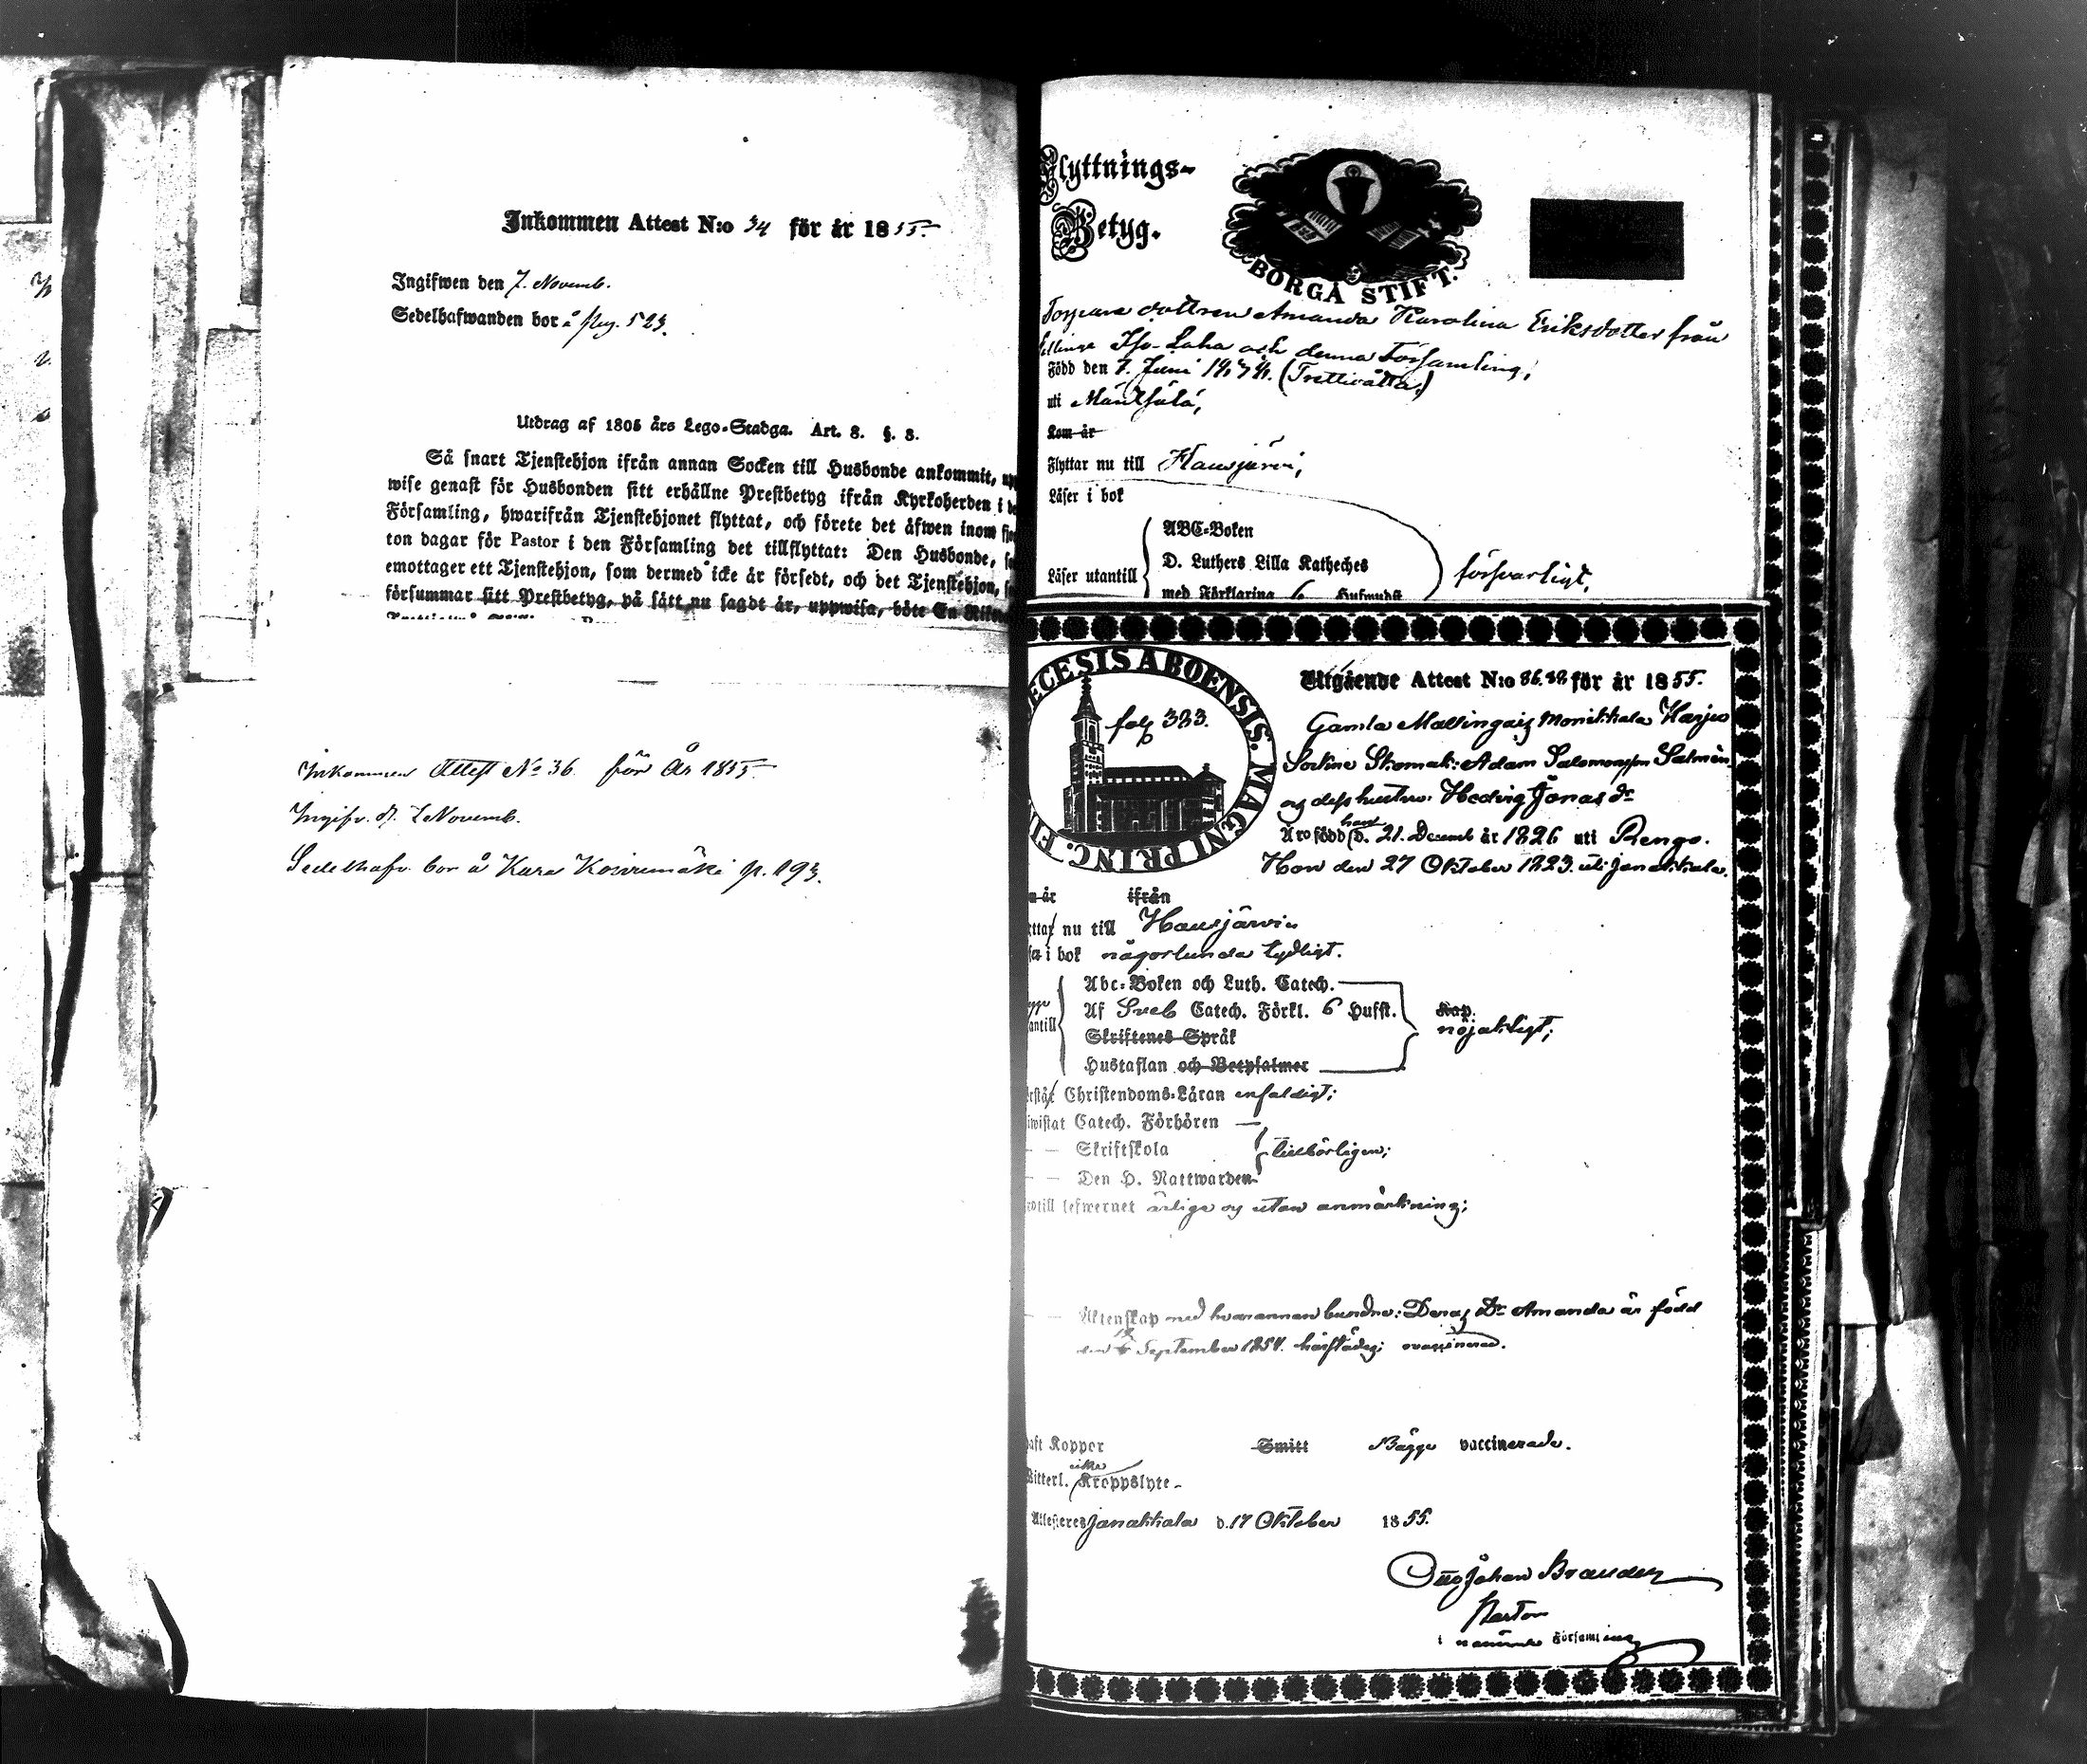 Inkommen Attest N:o 34 för år 1855.
Ingifwen den 7. Novemb.
Sedelhafwanden bor å pag. 523.
Utdrag af 1805 års Lego-Stadga. Art. 8. §. 8.
Så snart Tjenstehjon ifrån annan Socken till Husbonde ankommit,
wise genast för Husbonden sitt erhållne Prestbetyg ifrån Kyrkoherden i
Församling, hwarifrån Tjenstehjonet flyttat, och förete det äfwen inom
ton dagar för Pastor i den Församling det tillflyttat: Den Husbonde,
emottager ett Tjenstehjon, som dermed icke är försedt, och det Tjenstehjon,
försummar sitt Prestbetyg, på sätt nu sagdt är, uppwisa, böte En
Inkommen Attest No 36. för År 1855
Ingifv. d. 7 Novemb.
Sedelhafv. bor å Kara Koivumäki p. 193.
Flyttnings-
Betyg.
BORGÅ STIFT.
dottren Amanda Karolina Eriksdotter från
och denna Församling,
Född den 7. Juni 1838. (Trettioåtta,)
uti Mäntsälä,
Kom år
Flyttar nu till Hausjärvi,
Läser i bok
ABC-Boken
D. Luthers Lilla Katheches
Läser utantill försvarligt,
med Förklaring 6 Hufwudst
ECESIS ABOENSIS. MAGNI PRINC. FI
fol. 383.
Utgående Attest N:o 86.88 för år 1855.
Gamla Mallinais Monikkala Harju
Skomak: Adam Salomonsson Salmén
og dess hustru Hedvig Jonas dr
Äro född han d. 21. Decemb år 1826 uti Rengo.
Hon den 27 Oktober 1823. uti Janakkala.
m år ifrån
nu till Hausjärvi
i bok någorlunda tydligt.
Abc-Boken och Luth. Catech.
Af Sveb Catech. Förkl. 6 Hufst. Kap.
antill nöjaktigt;
Skriftenes Språk
Hustaflan och Botpsalmer
Christendoms-Läran enfaldigt;
iwistat Catech. Förhören
— — Skriftskola tillbörligen;
— — Den H. Nattwarden
till lefwernet ärlige og utan anmärkning;
— — Äktenskap med hvarannan bundne: Deras Dr Amanda är född
den 12 September 1854. härstädes; ovaccinerad.
aft Koppor Smitt Bägge vaccinerade.
Witterl. icke Kroppslyte
Attesteres Janakkala d. 17 Oktober 1855.
Otto Johan Brander
Pastor
i nämnde Församling